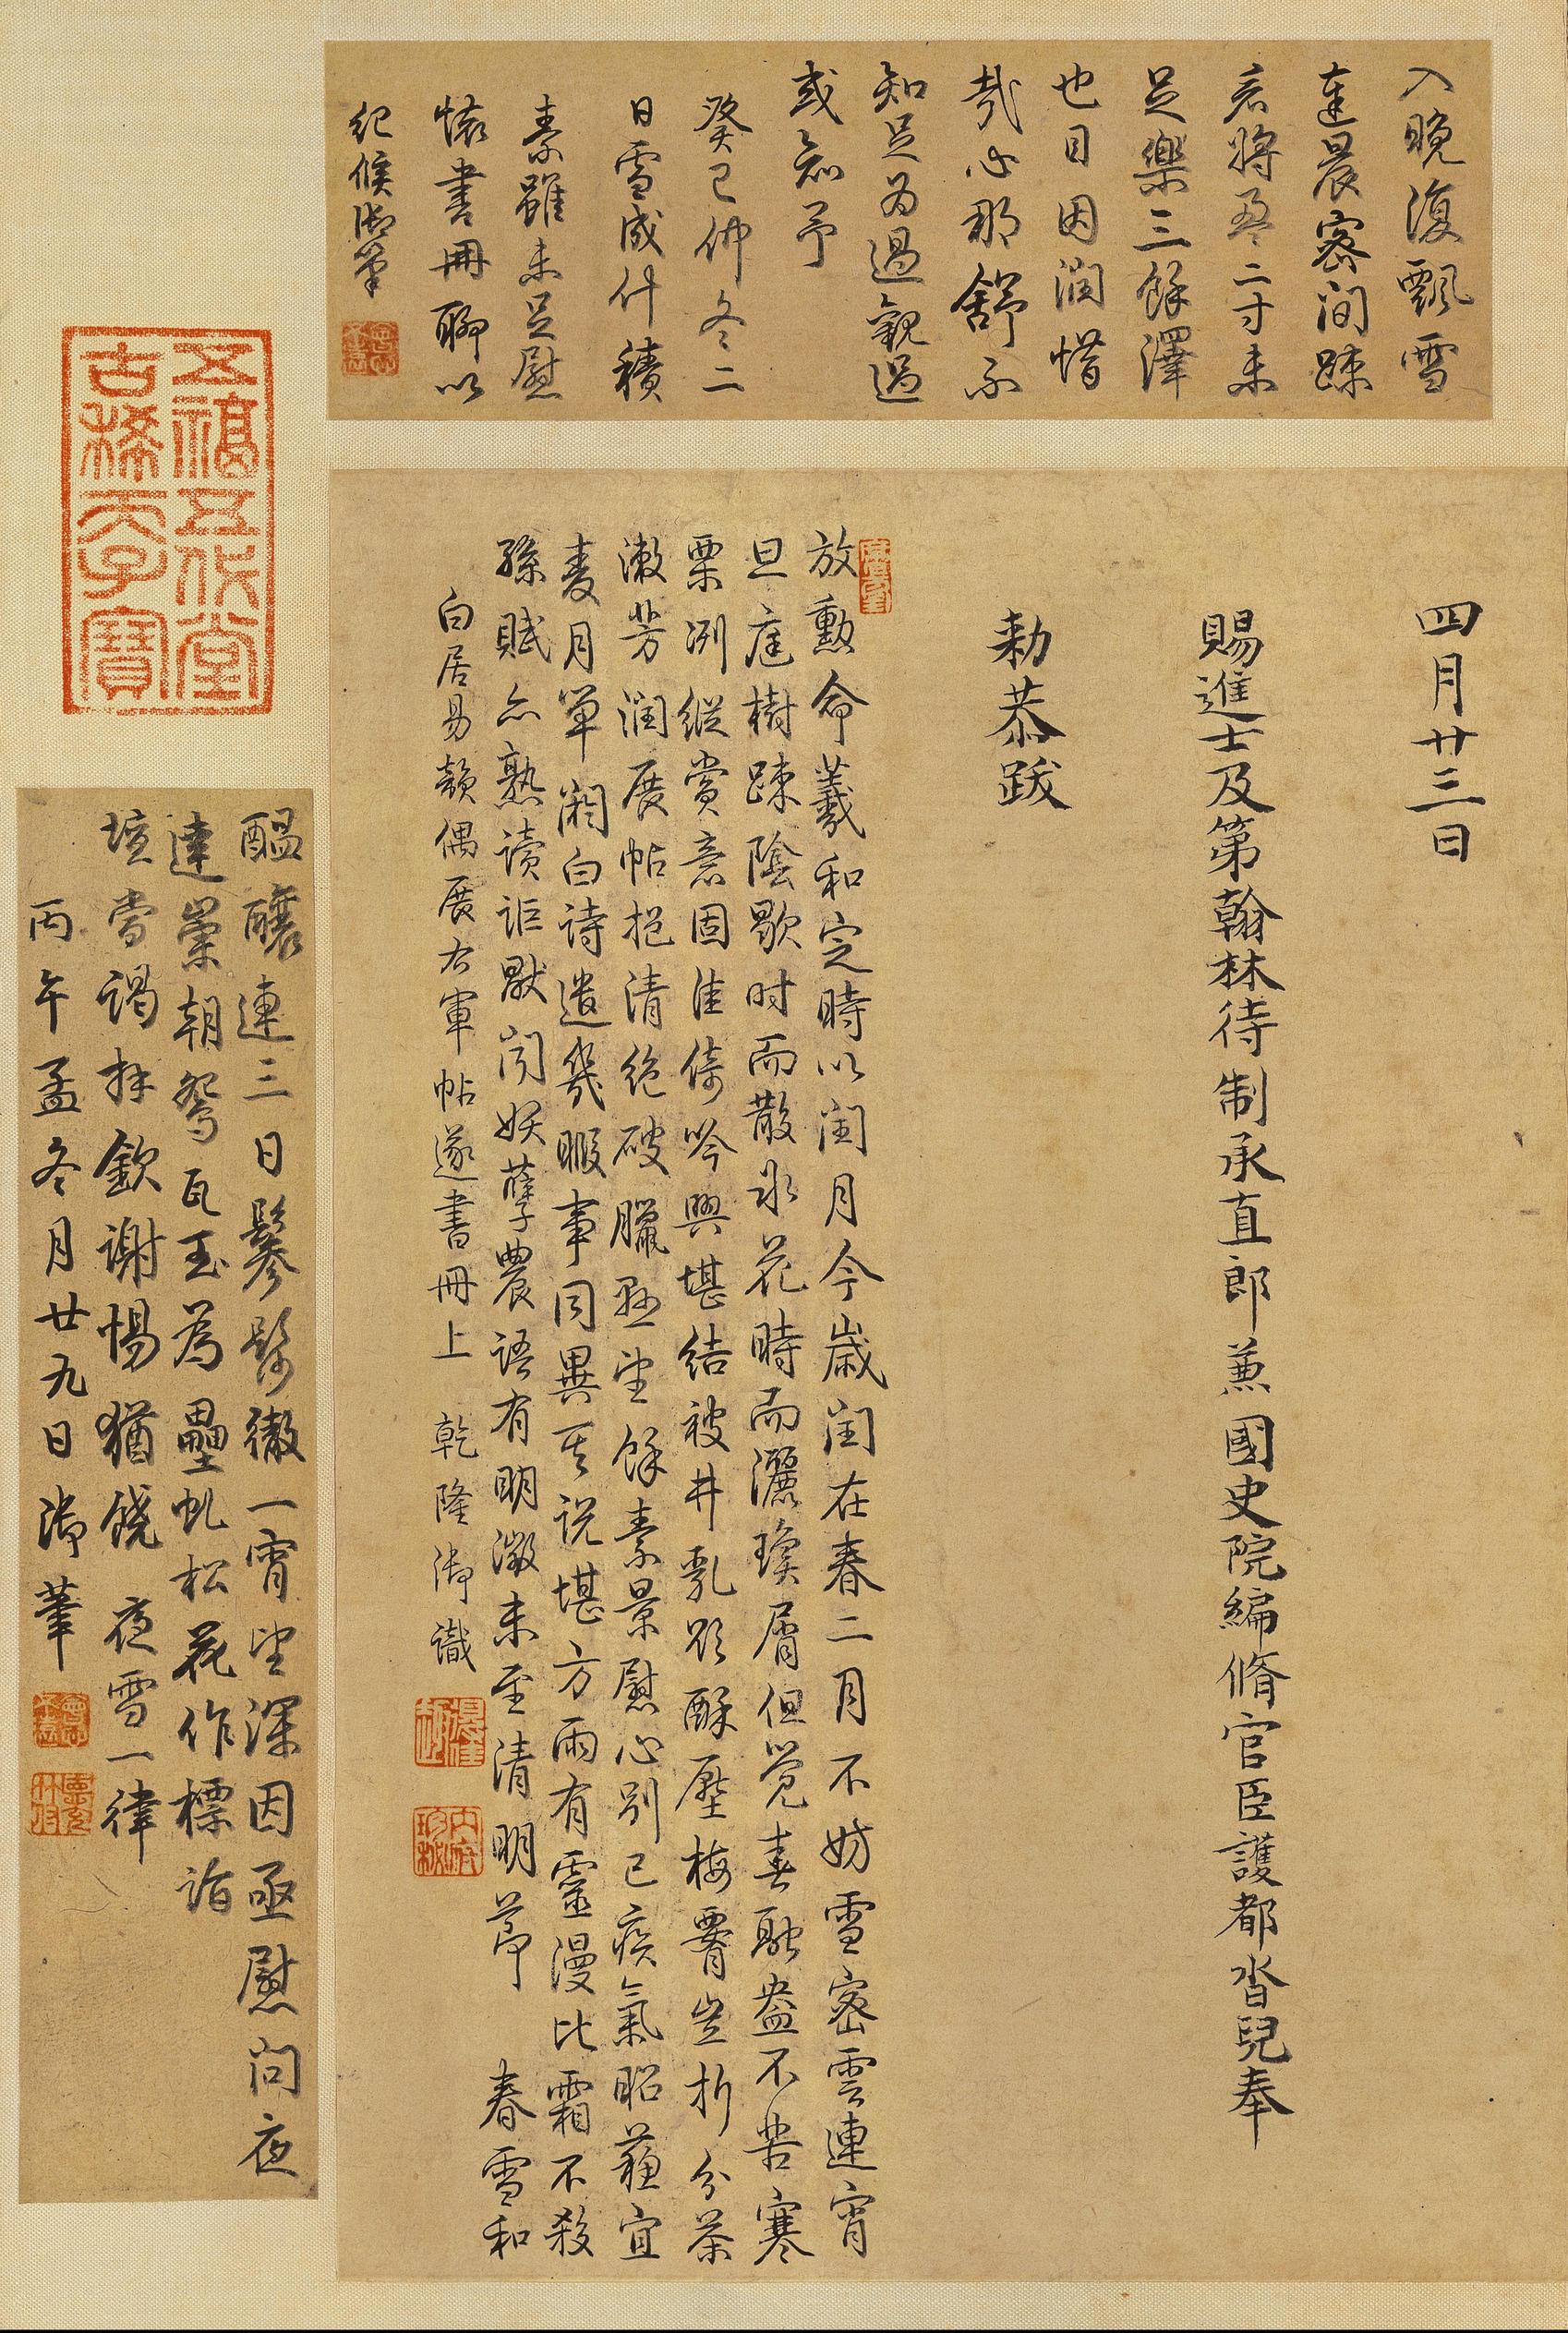 入晚復飄雪
達晨密間疎
宮將盈二寸未
足樂三餘澤
也目因潤惜
哉心那舒不
知足為過觀過
或知予
癸巳仲冬二
日雪成什積
素雖未足慰
懷書冊聊以
紀候御筆
四月廿三日
賜進士及第翰林待制承直郎兼國史院編脩官臣護都沓兒奉
勅恭跋
放勳命羲和定時以閏月今歲閏在春二月不妨雪密雲連宵
旦庭樹疎陰歇時而散氷花時而灑瓊屑但覺喜融盎不苦寒
栗冽縱賞意固佳倚吟興堪結被井乳欺酥壓梅霽豈折分茶
漱芳潤展帖挹清絕破臘愁望餘素景慰心別已疾氣昭蘇宜
麥月單閼白詩遣幾暇事同異其說堪方雨有靈漫比霜不殺
孫賦亦熟讀詎厭閔妖孽農語有明徵未至清明節 春雪和
白居易韻偶展右軍帖遂書冊上 乾隆御識
醖釀連三日鬖髿徹一宵望深因亟慰問夜
達崇朝鴛瓦玉為壘虬松花作標詣
壇當謁拜欽謝惕猶饒 夜雪一律
丙午孟冬月廿九日御筆
五福五代堂
古稀天子寶